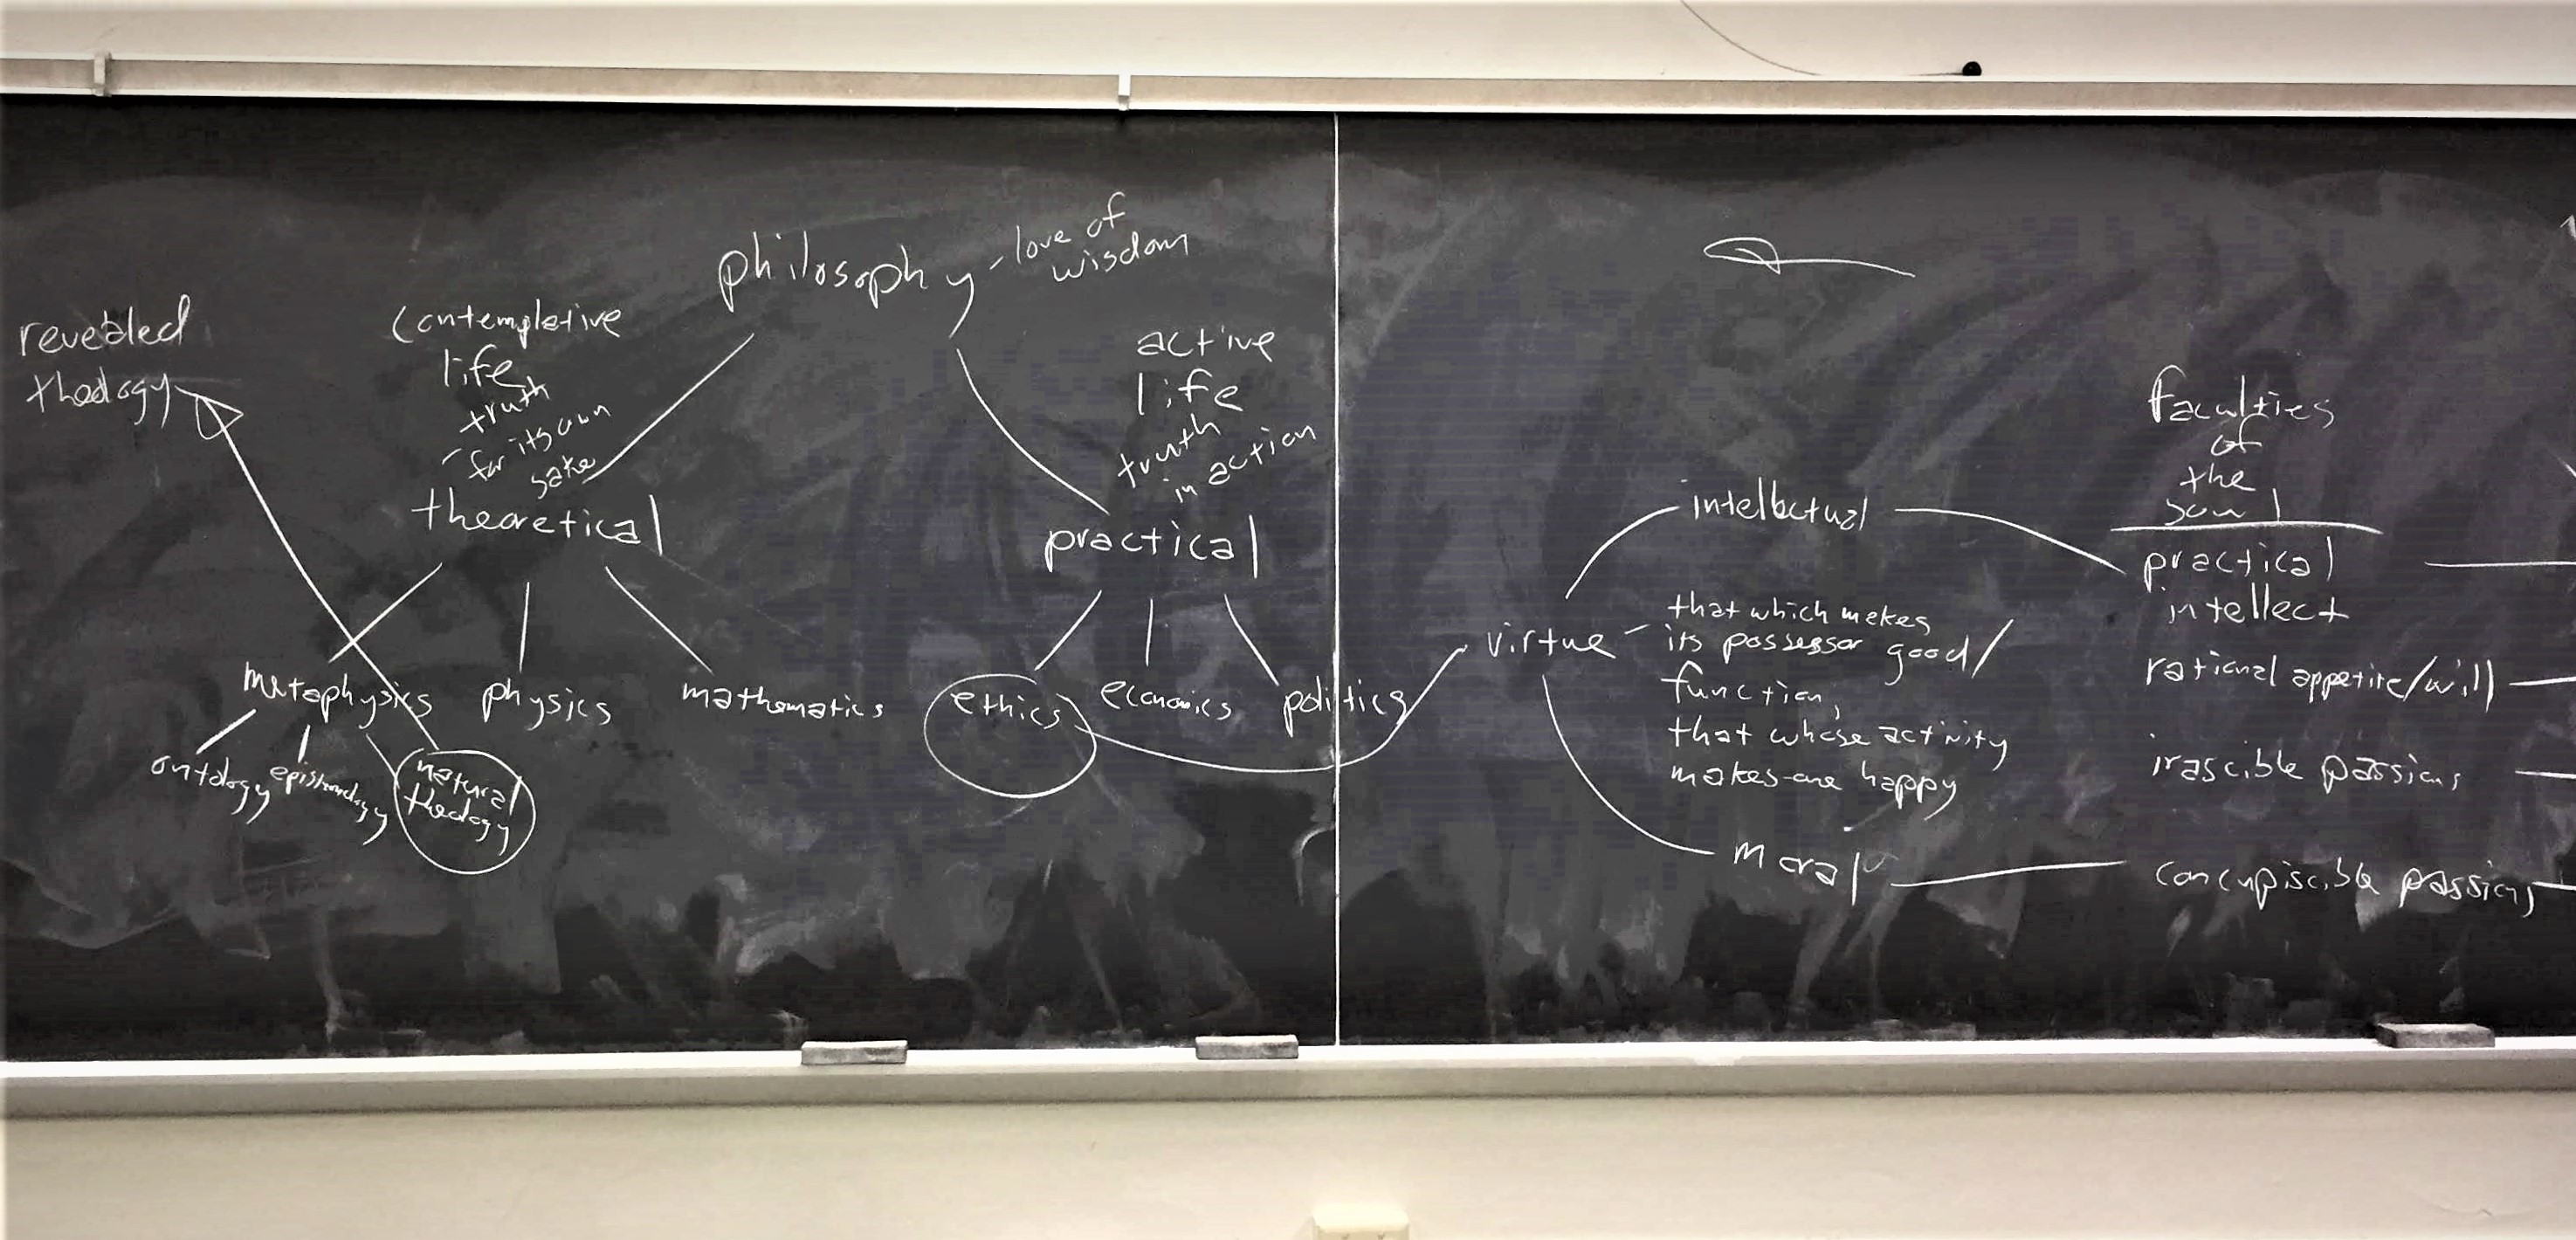 philosophy - love of
wisdom
revealed
theology
contemplative
life
truth
- for its own
sake
theoretical
active
life
truth
in action
practical
metaphysics
physics
mathematics
ethics
economics
politics
ontology
epistemology
natural
theology
virtue -
that which makes
its possessor good/
function,
that whose activity
makes one happy
intellectual
moral
faculties
of
the
soul
practical
intellect
rational appetite/will
irascible passions
concupiscible passions